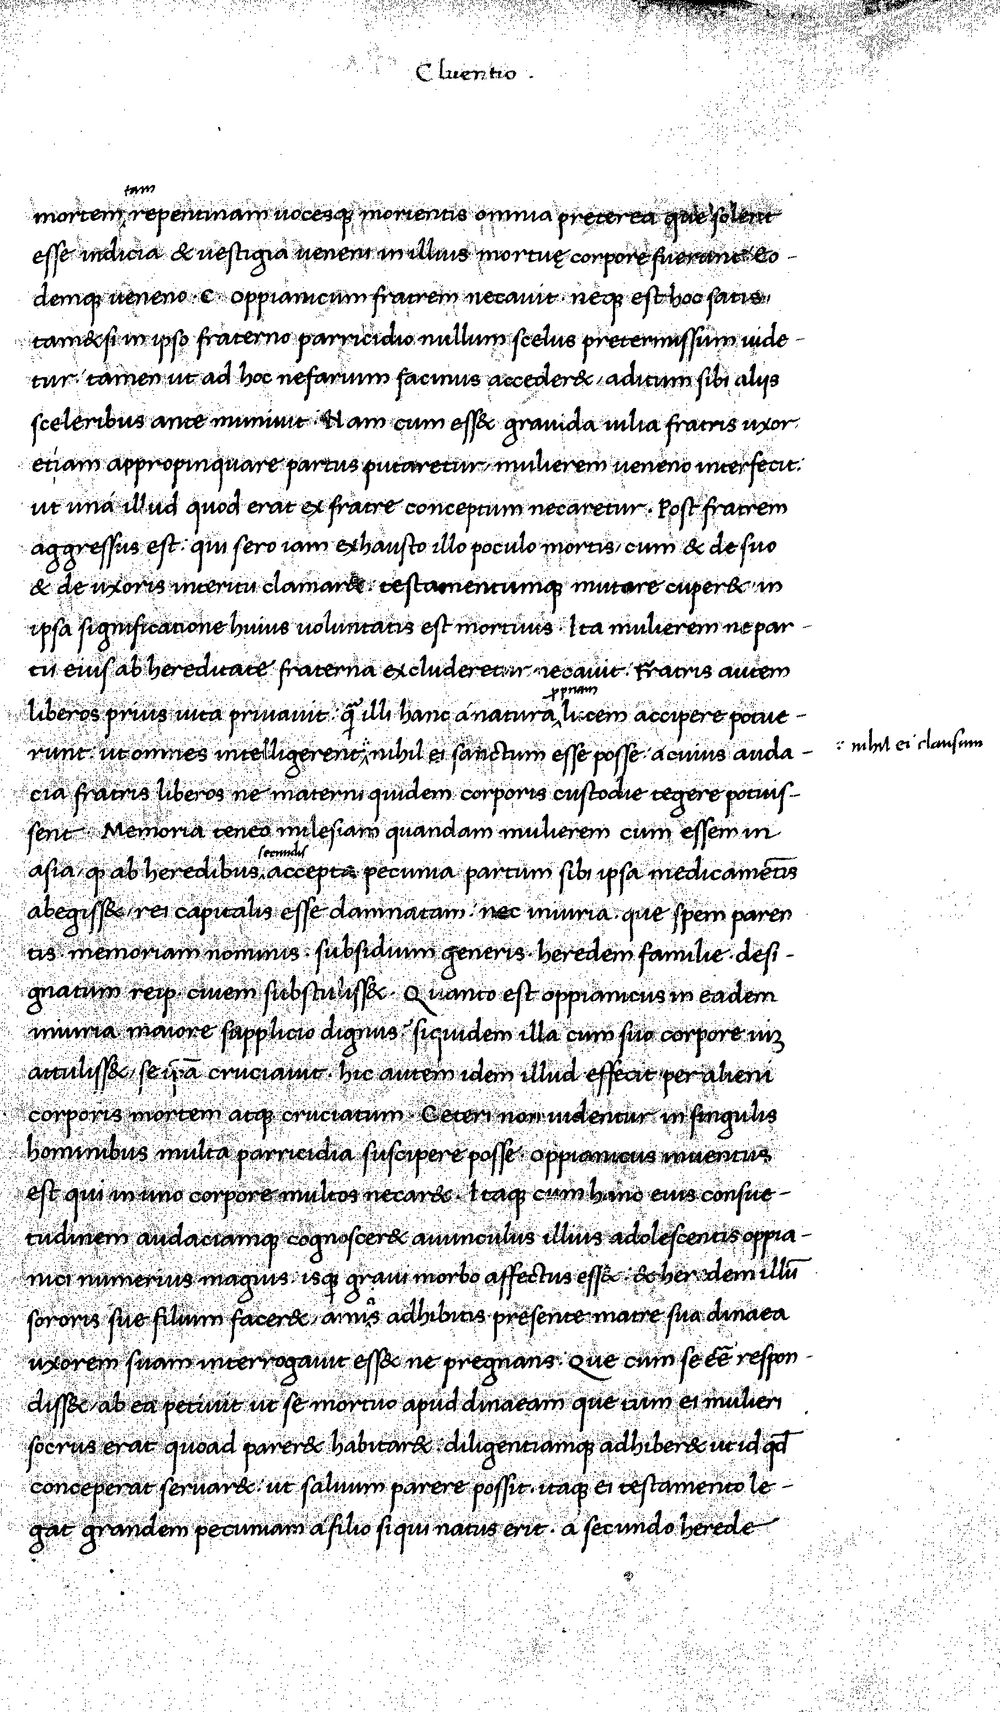 Cluentio .
tam
mortem repentinam uocesq; morientis omnia preterea que solent
esse indicia & uestigia ueneni in illius mortuę corpore fuerunt. Eo-
demq; ueneno. C. oppianicum fratrem necauit. neq; est hoc satis,
tam&si in ipso fraterno parricidio nullum scelus pretermissum uide-
tur. tamen ut ad hoc nefarium facinus acceder&, aditum sibi alijs
sceleribus ante muniuit. Nam cum ess& grauida iulia fratris uxor
etiam appropinquare partus putaretur, mulierem ueneno interfecit.
ut uná illud quod erat ex fratre conceptum necaretur. Post fratrem
aggressus est. qui sero iam exhausto illo poculo mortis, cum & de suo
& de uxoris interitu clamar&. testamentumq; mutare cuper&. in
ipsa significatione huius uoluntatis est mortuus. Ita mulierem ne par-
tu eius ab hereditate fraterna excluderetur necauit. Fratris autem
ppriam
liberos prius uita priuauit. q̃ illi hanc a natura lucem accipere potue-
runt. ut omnes intelligerent, nihil ei sanctum esse posse. a cuius auda-
:· nihil ei clausum
cia fratris liberos ne materni quidem corporis custodie tegere potuis-
sent. Memoria teneo milesiam quandam mulierem cum essem in
secundis
asia, q; ab heredibus accepta pecunia partum sibi ipsa medicamētis
abegiss&, rei capitalis esse damnatam. nec iniuria. que spem paren
tis. memoriam nominis. subsidium generis. heredem familie. desi-
gnatum reip. ciuem substuliss&. Quanto est oppianicus in eadem
iniuria maiore supplicio dignus. siquidem illa cum suo corpore uiꝫ
attuliss&, se ip̄ā cruciauit. hic autem idem illud effecit per alieni
corporis mortem atq; cruciatum. Ceteri non uidentur in singulis
hominibus multa parricidia suscipere posse. oppianicus inuentus
est qui in uno corpore multos necar&. Itaq; cum hanc eius consue-
tudinem audaciamq; cognoscer& auunculus illius adolescentis oppia-
nici numerius magius. isq; graui morbo affectus ess&. & heredem illū
sororis sue filium facer&, amis adhibitis presente matre sua dinaea
uxorem suam interrogauit ess& ne pregnans. Que cum se eē respon-
diss&, ab ea petiuit ut se mortuo apud dinaeam que tum ei mulieri
socrus erat quoad parer& habitar&. diligentiamq; adhiber& ut id qd̄
conceperat seruar&. ut saluum parere possit. itaq; ei testamento le-
gat grandem pecuniam a filio siqui natus erit. a secundo herede